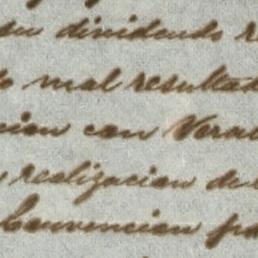 su dividendo
mal resultad
cion con Vera
realizacion de
Convencion